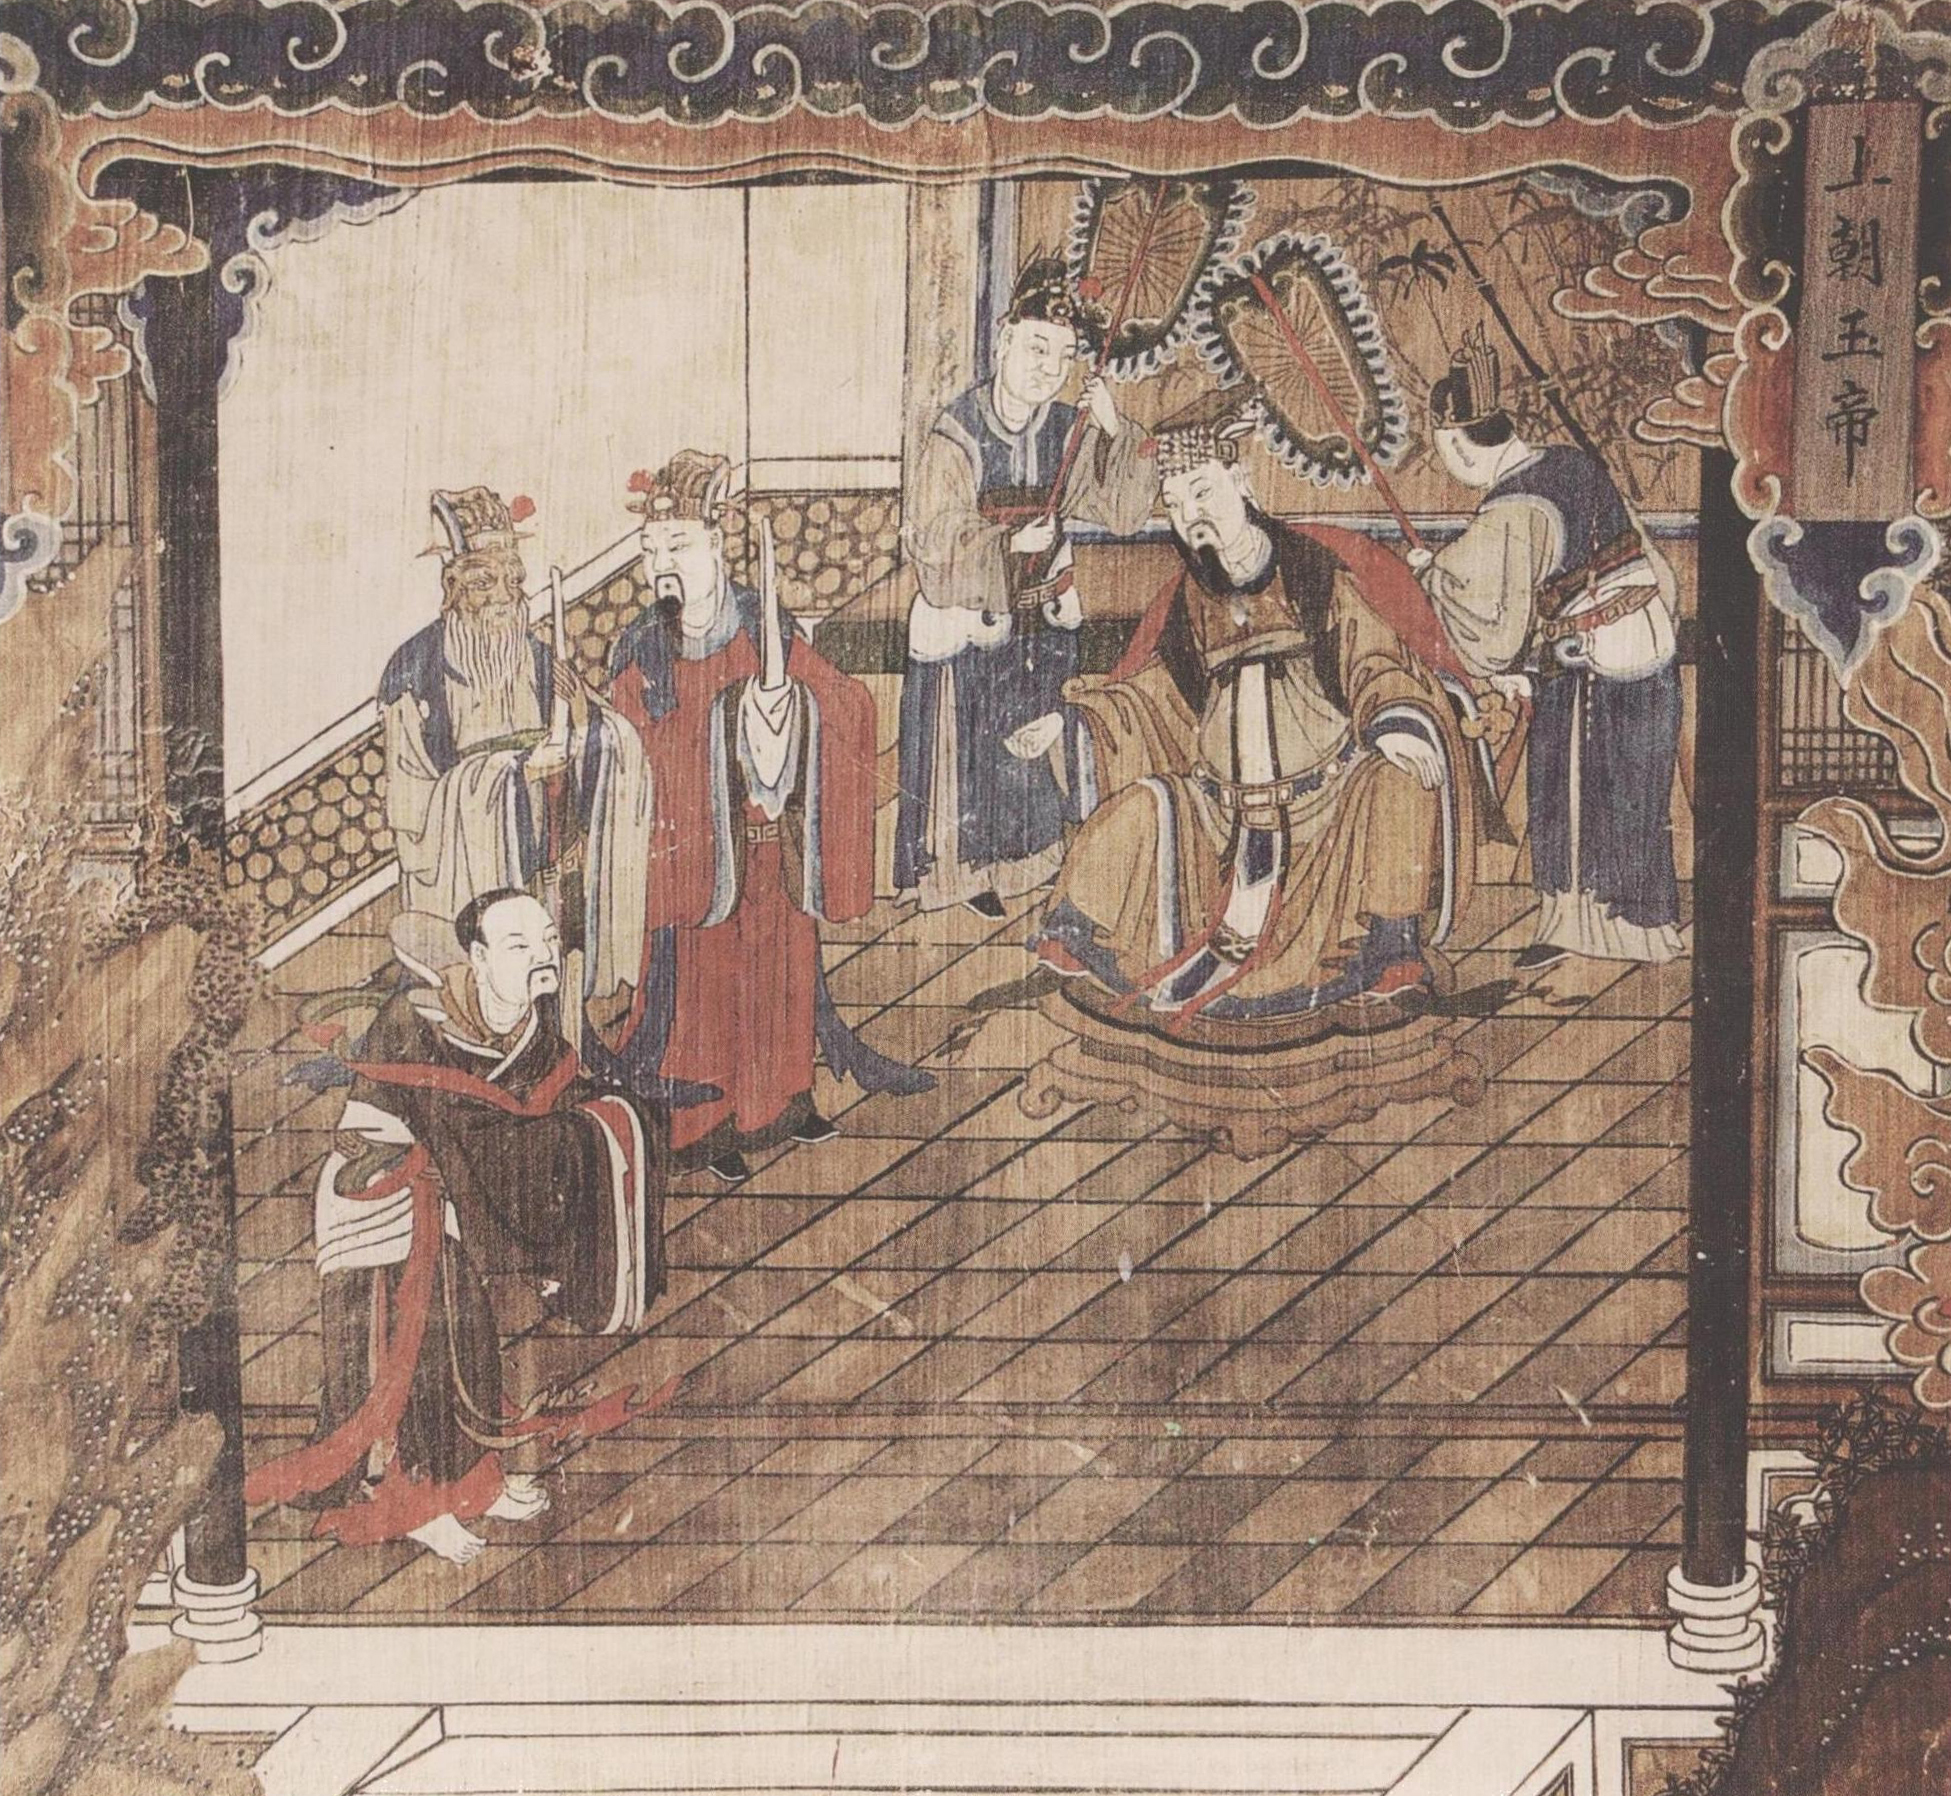 上朝玉帝